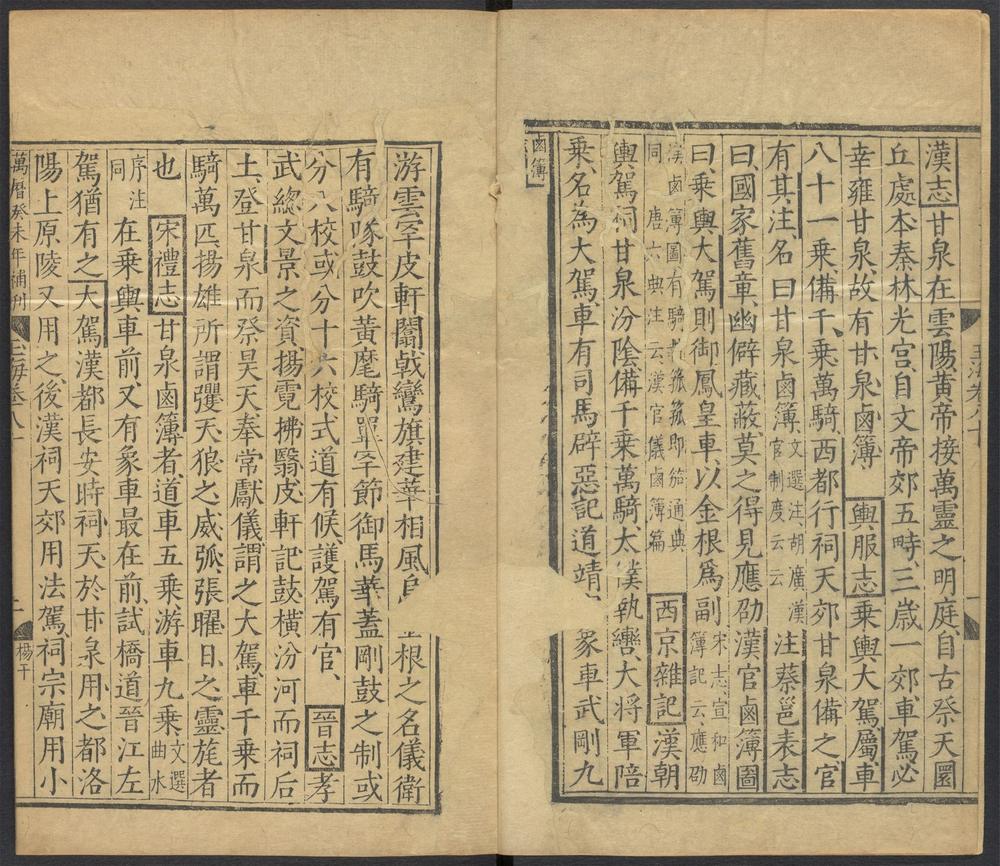 玉海卷八十
漢志甘泉在雲陽黃帝接萬靈之明庭自古祭天圜
丘處本秦林光宮自文帝郊五畤三歲一郊車駕必
幸雍甘泉故有甘泉鹵簿輿服志乘輿大駕屬車
八十一乘備千乘萬騎西都行祠天郊甘泉備之官
有其注名曰甘泉鹵簿文選注胡廣漢官制度云云注蔡邕表志
曰國家舊章幽僻藏蔽莫之得見應劭漢官鹵簿圖
曰乘輿大駕則御鳳皇車以金根為副宋志宣和鹵簿記云應劭
漢鹵簿圖有騎執菰菰即笳通典同唐六典注云漢官儀鹵簿篇西京雜記漢朝
輿駕祠甘泉汾陰備千乘萬騎太僕執轡大將軍陪
乘名為大駕車有司馬辟惡記道靖象車武剛九
鹵簿
游雲罕皮軒闟戟鸞旗建華相風烏根之名儀衛
有騎啄鼓吹黃麾騎罼罕節御馬華蓋剛鼓之制或
分八校或分十六校式道有候護駕有官晉志孝
武總文景之資揚霓拂翳皮軒記鼓橫汾河而祠后
土登甘泉而祭昊天奉常獻儀謂之大駕車千乘而
騎萬匹揚雄所謂彏天狼之威弧張曜日之靈旄者
也宋禮志甘泉鹵簿者道車五乘游車九乘文選曲水
序注同在乘輿車前又有象車最在前試橋道晉江左
駕猶有之大駕漢都長安時祠天於甘泉用之都洛
陽上原陵又用之後漢祠天郊用法駕祠宗廟用小
萬曆癸未年補刊
玉海卷八十
楊干